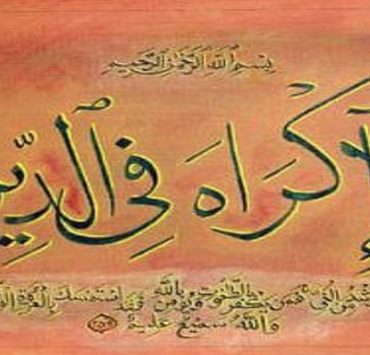 بسم الله الرحمن الرحيم
إكراه في الدين
الرشد من الغي فمن يكفر بالطاغوت ويؤمن بالله فقد استمسك بالعروة
والله سميع عليم ٢٥٦